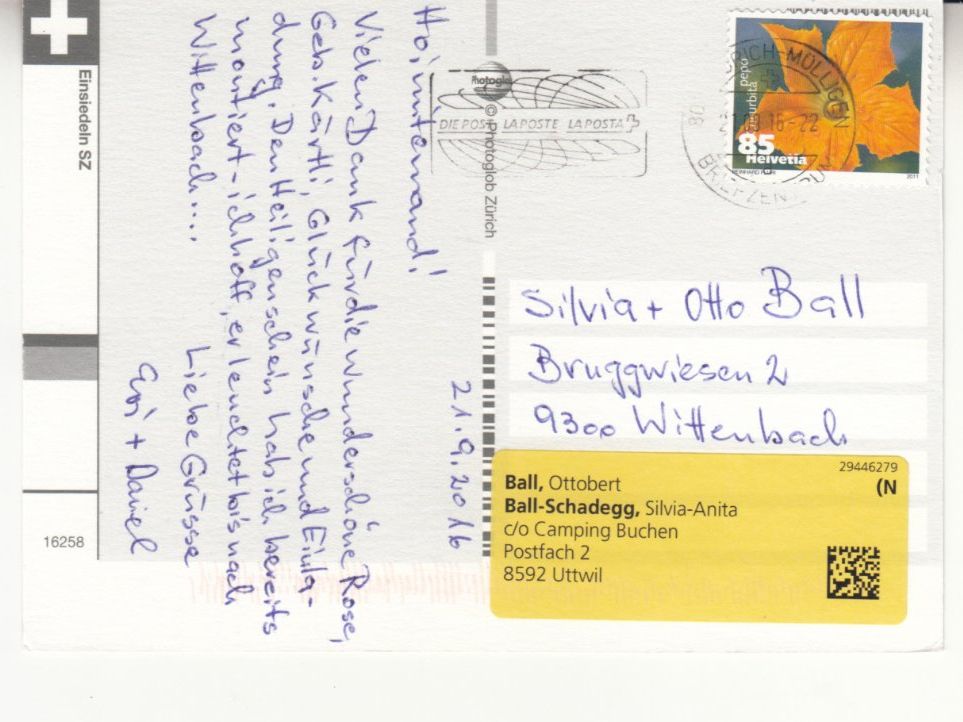 Einsiedeln SZ
16258
Hoi mitenand!
21.9.2016
Vielen Dank für die wunderschöne Rose,
Geb. Kärtli, Glückwünsche und Einla-
dung. Den Heiligenschein hab ich bereits
montiert - ich hoff, er leuchtet bis nach
Wittenbach...
Liebe Grüsse
+ Daniel
© Photoglob Zürich
Photoglob
DIE POST LA POSTE LA POSTA
Cucurbita pepo
85
Helvetia
2011
Silvia + Otto Ball
Bruggwiesen 2
9300 Wittenbach
29446279
(N
Ball, Ottobert
Ball-Schadegg, Silvia-Anita
c/o Camping Buchen
Postfach 2
8592 Uttwil